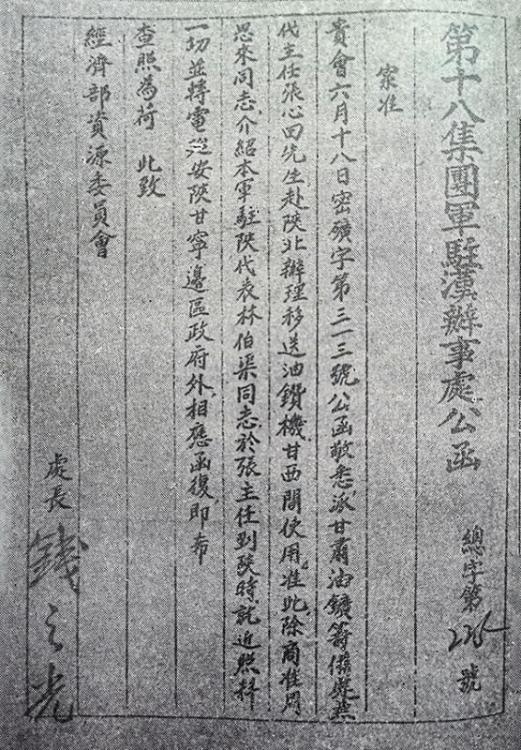 第十八集團軍駐漢辦事處公函
總字第 號
案准
貴會六月十八日密礦字第三一三號公函敬悉派甘肅油鑛籌備處兼
代主任張心田先生赴陝北辦理移送油鑽機甘西開使用准此除商准周
恩來同志介紹本軍駐陝代表林伯渠同志於張主任到陝時就近照料
一切並轉電延安陝甘寧邊區政府外相應函復即希
查照為荷 此致
經濟部資源委員會
處長 錢之光